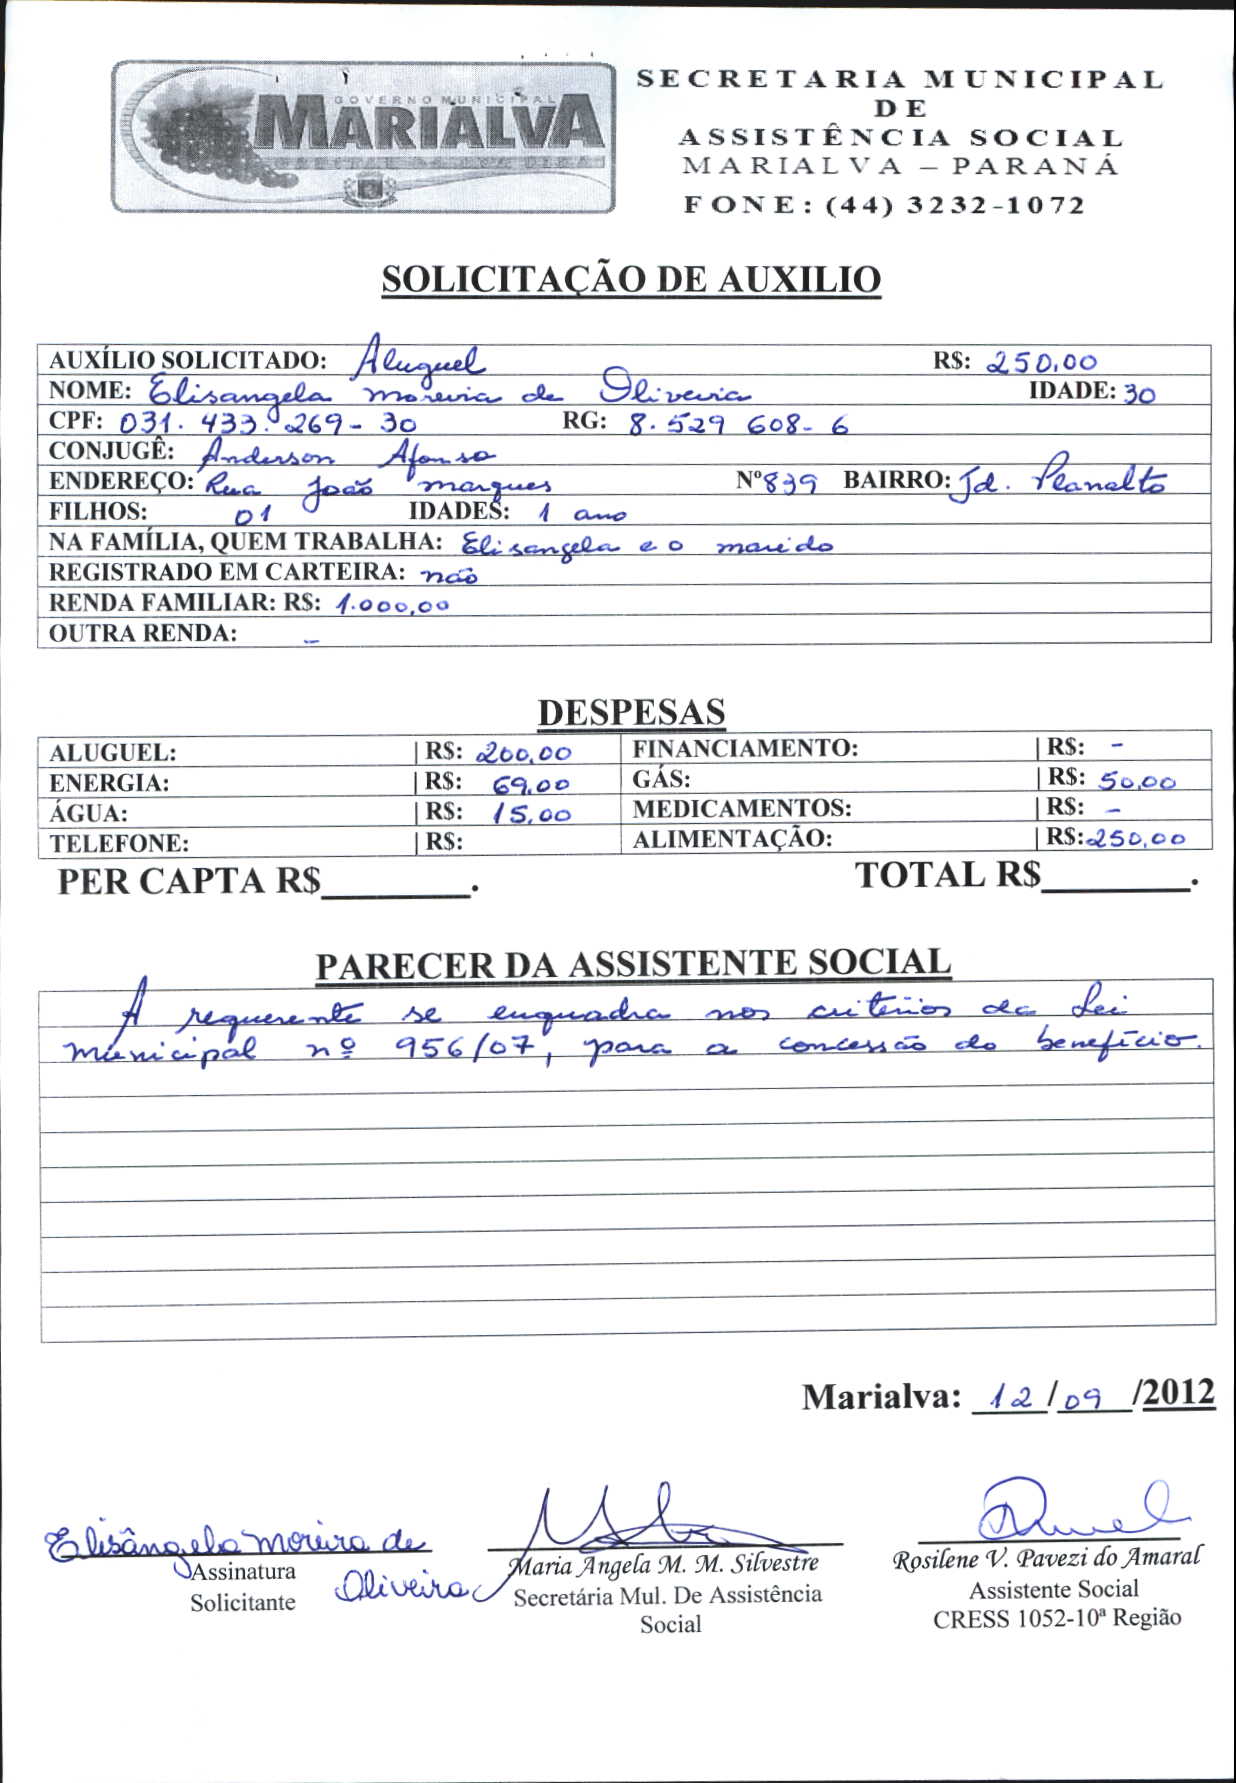 GOVERNO MUNICIPAL
MARIALVA
SECRETARIA MUNICIPAL
DE
ASSISTÊNCIA SOCIAL
MARIALVA – PARANÁ
FONE: (44) 3232-1072
SOLICITAÇÃO DE AUXILIO
AUXÍLIO SOLICITADO: Aluguel R$: 250,00
NOME: Elisangela Moreira de Oliveira IDADE: 30
CPF: 031.433.269-30 RG: 8.529 608-6
CONJUGÊ: Anderson Afonso
ENDEREÇO: Rua João Marques Nº 839 BAIRRO: Jd. Planalto
FILHOS: 01 IDADES: 1 ano
NA FAMÍLIA, QUEM TRABALHA: Elisangela e o marido
REGISTRADO EM CARTEIRA: não
RENDA FAMILIAR: R$: 1.000,00
OUTRA RENDA: -
DESPESAS
ALUGUEL: | R$: 200,00 FINANCIAMENTO: | R$: -
ENERGIA: | R$: 69,00 GÁS: | R$: 50,00
ÁGUA: | R$: 15,00 MEDICAMENTOS: | R$: -
TELEFONE: | R$: ALIMENTAÇÃO: | R$: 250,00
PER CAPTA R$________. TOTAL R$________.
PARECER DA ASSISTENTE SOCIAL
A requerente se enquadra nos critérios da Lei
municipal nº 956/07, para a concessão do benefício.
Marialva: 12/09/2012
Elisângela Moreira de
Oliveira
Assinatura
Solicitante
Maria Angela M. M. Silvestre
Secretária Mul. De Assistência
Social
Rosilene V. Pavezi do Amaral
Assistente Social
CRESS 1052-10ª Região